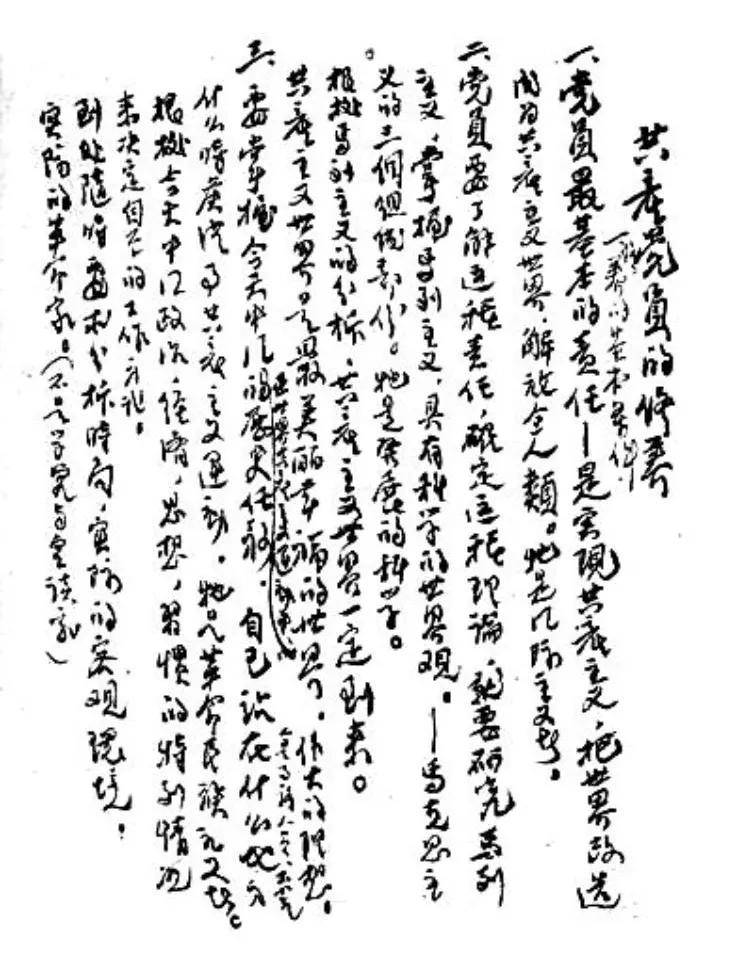 共产党员的修养
一般的基本条件
一、党员最基本的责任—是实现共产主义，把世界改造
成为共产主义世界，解放全人类。他是国际主义者。
二、党员要了解这种责任，确定这种理论，就要研究马列
主义，掌握马列主义，具有科学的世界观。—马克思主
义的三个组成部分。他是发展的科学。
根据马列主义的分析，共产主义世界一定到来。
共产主义世界是最美丽幸福的世界，伟大的理想。
三、要掌握今天中国的历史任务，自己站在什么地方
什么时候从事共产主义运动。他是革命民族主义者。
根据今天中国政治，经济，思想，习惯的特别情况
来决定自己的工作方针。
到处随时要求分析时局，实际的客观环境。
实际的革命家。（不是学究与空谈家）